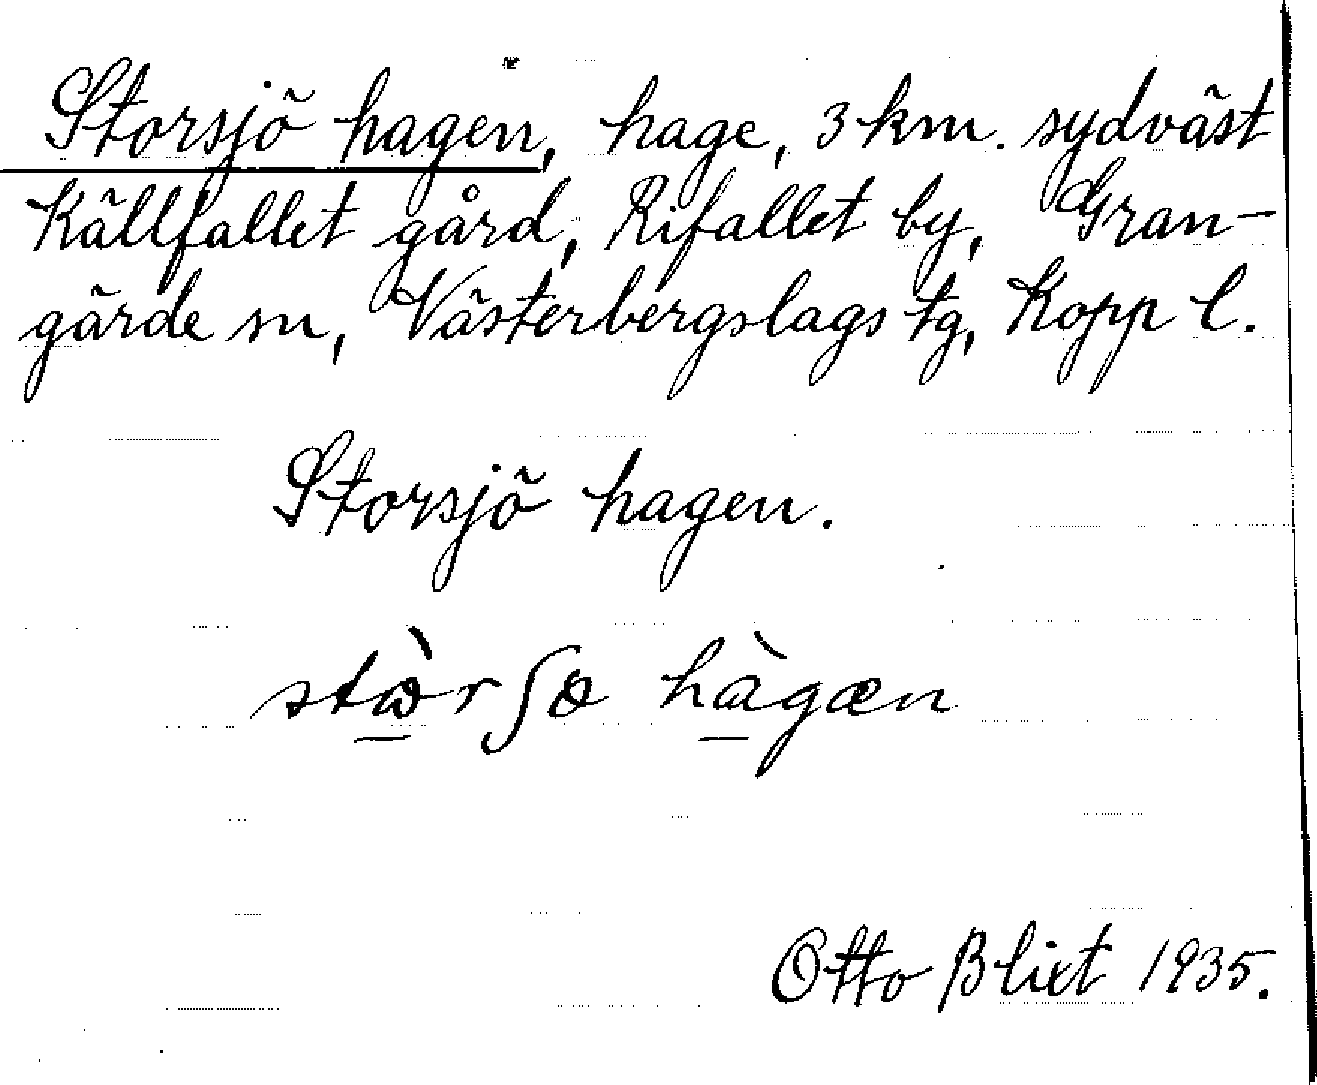 Storsjö hagen, hage, 3 km. sydväst
Källfallet gård, Rifallet by, Gran-
gärde sn, Västerbergslags tg, Kopp l.
Storsjö hagen.
hàgæn
Otto Blixt 1935.